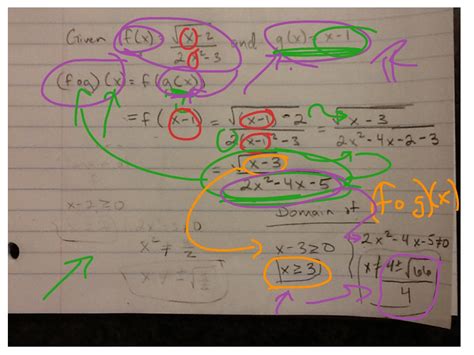 Given f(x) = √(x-2) / 2x²-3 and g(x) = x-1
(fog)(x) = f(g(x))
= f(x-1) = √((x-1)-2) / 2(x-1)²-3 = √(x-3) / 2x²-4x-2-3
= √(x-3) / 2x²-4x-5
Domain of (fog)(x)
x-2≥0
x-3≥0
2x²-4x-5≠0
x² ≠
x≥3
x≠ 4±√66 / 4